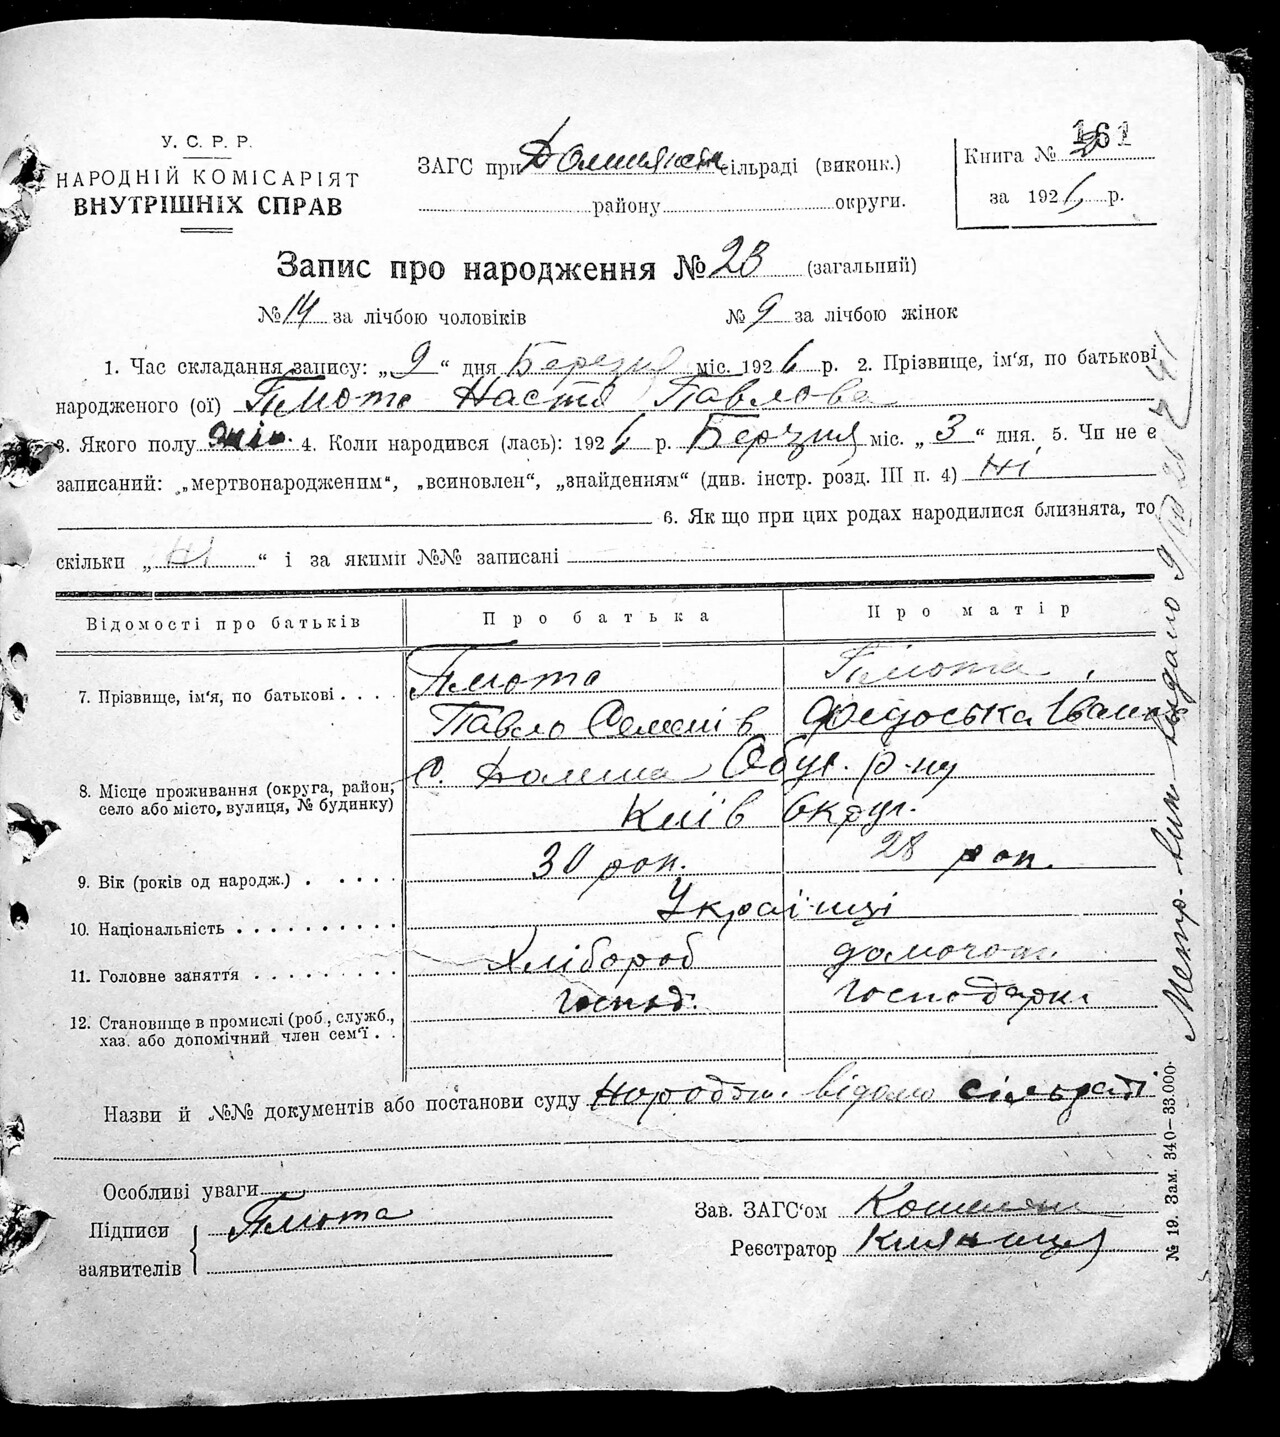 У. С. Р. Р.
НАРОДНІЙ КОМІСАРІЯТ
ВНУТРІШНІХ СПРАВ
ЗАГС при сільраді (виконк.)
району округи.
161
Книга №
за 1926 р.
Запис про народження № 23 (загальний)
№ 14 за лічбою чоловіків № 9 за лічбою жінок
1. Час складання запису: „ 9 “ дня Березня міс. 1926 р. 2. Прізвище, ім'я, по батькові
народженого (ої) Настя Павлова
3. Якого полу жін. 4. Коли народився (лась): 1926 р. Березня міс. „ 3 “ дня. 5. Чи не є
записаний: „мертвонародженим“, „всиновлен“, „знайденням“ (див. інстр. розд. III п. 4) Ні
6. Як що при цих родах народилися близнята, то
скільки „ Ні “ і за якими №№ записані
Відомості про батьків Про батька Про матір
7. Прізвище, ім'я, по батькові . . . .
Павло Семенів Федоська Іванов
8. Місце проживання (округа, район, село або місто, вулиця, № будинку) С. Долина Обух. р-ну
Київ округ.
9. Вік (років од народж.) . . . . . 30 рок. 28 рок.
10. Національність . . . . . . . . . . Українці
11. Головне заняття . . . . . . . . . Хлібороб домогосп.
12. Становище в промислі (роб., служб., хаз. або допомічний член сем'ї . . господ. господарк.
Назви й №№ документів або постанови суду Народж. відомо сільраді
Особливі уваги
Підписи
заявителів
Зав. ЗАГС'ом
Реєстратор
Метр. вип. видано 9/
№ 19. Зам. 340—33.000.